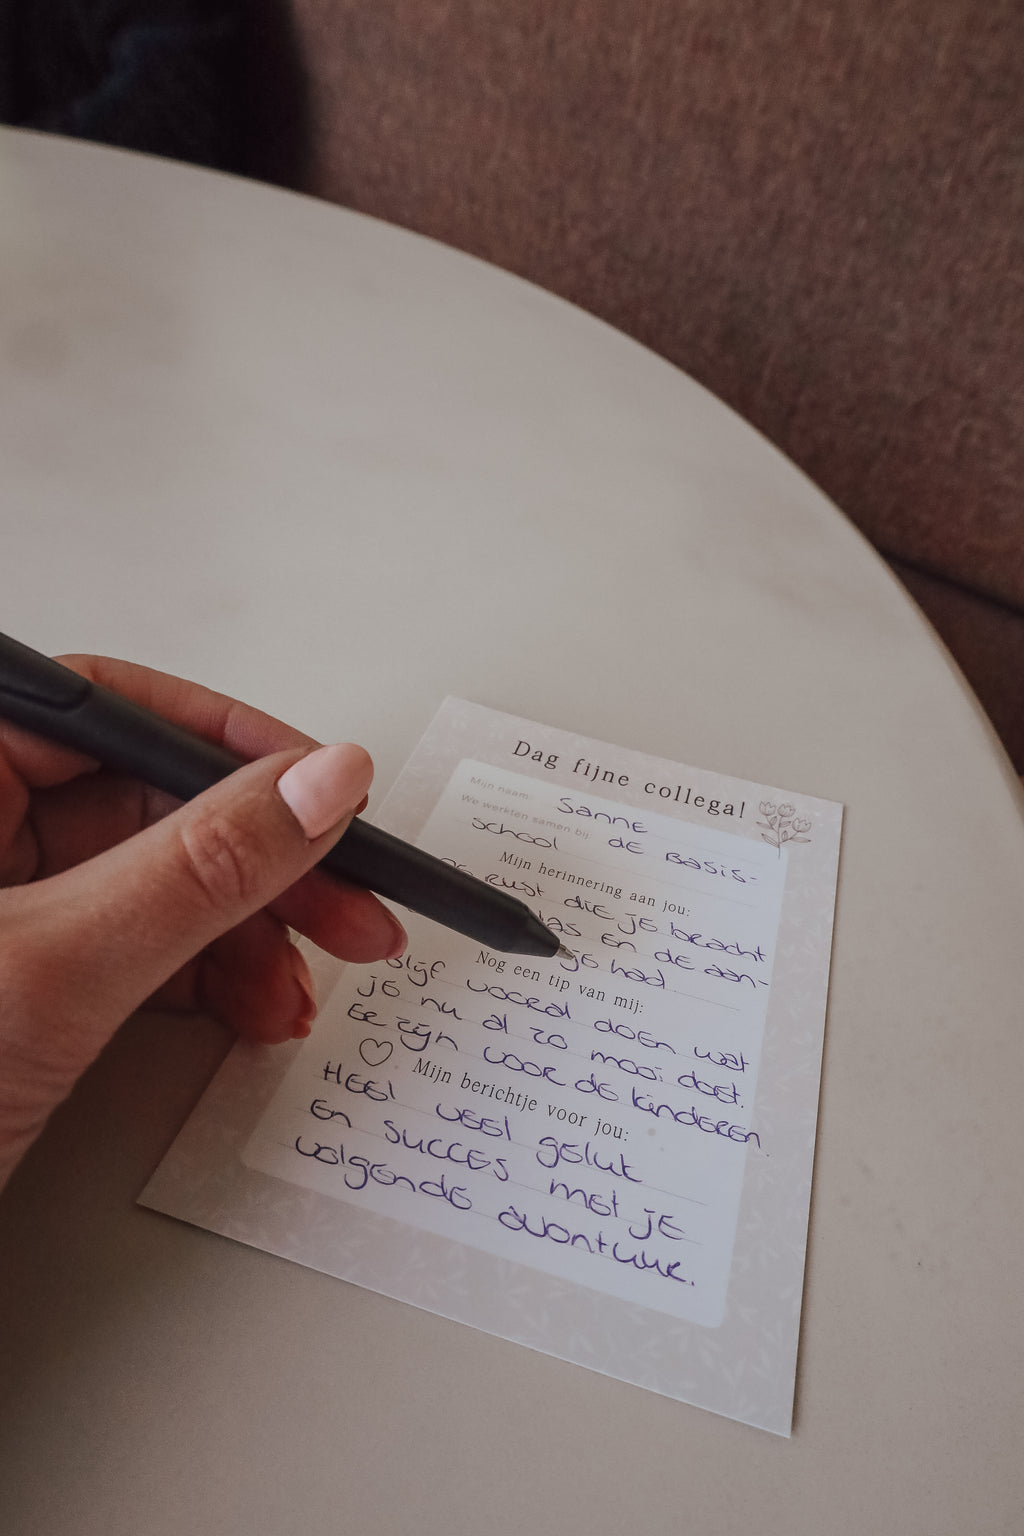 Dag fijne collega!
Mijn naam: Sanne
We werkten samen bij: de Basis-
school
Mijn herinnering aan jou:
rust die je bracht
en de aan-
je had
Nog een tip van mij:
Blijf vooral doen wat
je nu al zo mooi doet.
Er zijn voor de kinderen.
Mijn berichtje voor jou:
Heel veel geluk
en succes met je
volgende avontuur.